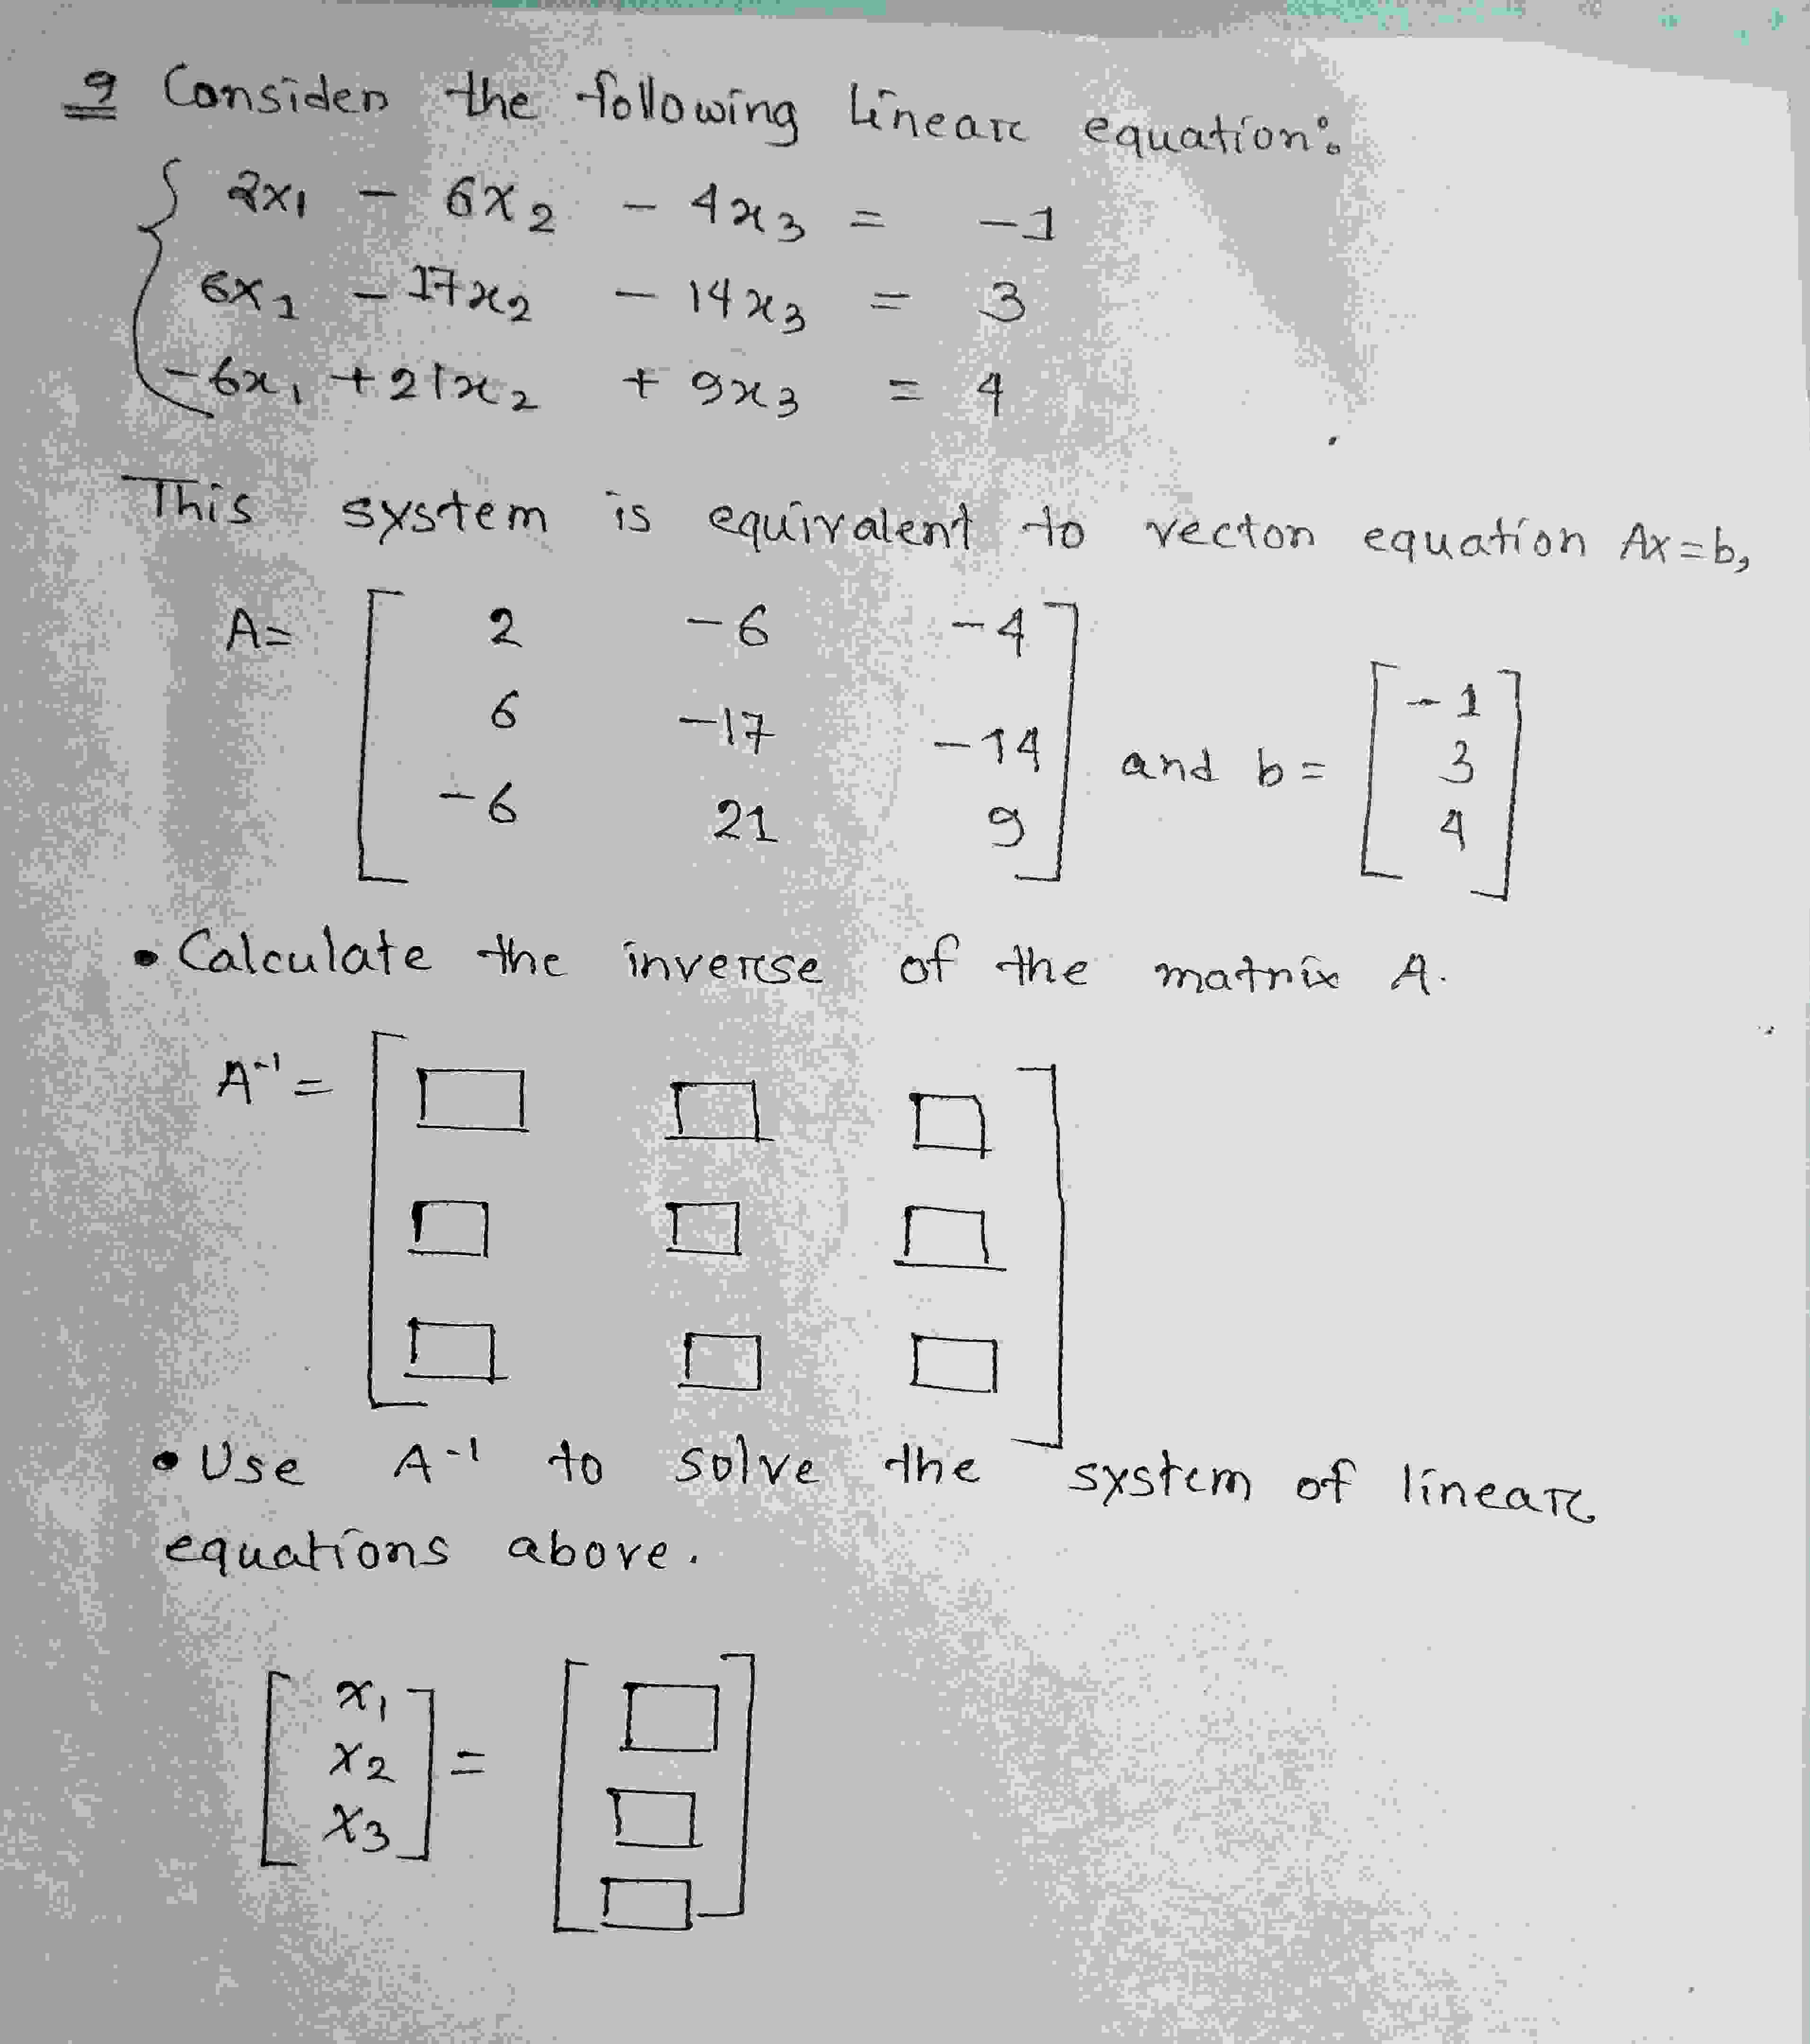 9 Consider the following linear equation:
2x₁ - 6x₂ - 4x₃ = -1
6x₁ - 17x₂ - 14x₃ = 3
-6x₁ + 21x₂ + 9x₃ = 4
This system is equivalent to vector equation Ax=b,
A= [ 2 -6 -4
6 -17 -14
-6 21 9 ] and b = [ -1
3
4 ]
• Calculate the inverse of the matrix A.
A⁻¹ = [ □ □ □
□ □ □
□ □ □ ]
• Use A⁻¹ to solve the system of linear
equations above.
[ x₁
x₂
x₃ ] = [ □
□
□ ]